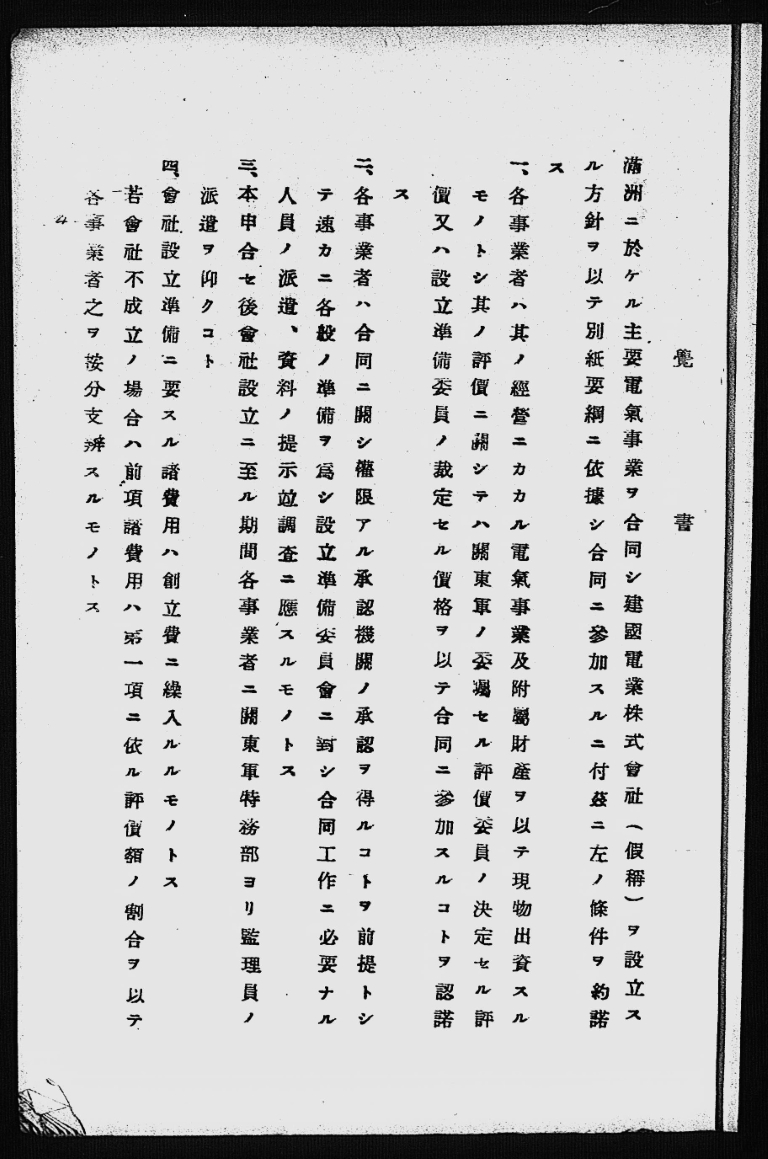 覺書
滿洲ニ於ケル主要電氣事業ヲ合同シ建國電業株式會社（假稱）ヲ設立ス
ル方針ヲ以テ別紙要綱ニ依據シ合同ニ參加スルニ付玆ニ左ノ條件ヲ約諾
ス
一、各事業者ハ其ノ經營ニカカル電氣事業及附屬財產ヲ以テ現物出資スル
モノトシ其ノ評價ニ關シテハ關東軍ノ委囑セル評價委員ノ決定セル評
價又ハ設立準備委員ノ裁定セル價格ヲ以テ合同ニ參加スルコトヲ認諾
ス
二、各事業者ハ合同ニ關シ權限アル承認機關ノ承認ヲ得ルコトヲ前提トシ
テ速カニ各般ノ準備ヲ爲シ設立準備委員會ニ對シ合同工作ニ必要ナル
人員ノ派遣、資料ノ提示竝調査ニ應スルモノトス
三、本申合セ後會社設立ニ至ル期間各事業者ニ關東軍特務部ヨリ監理員ノ
派遣ヲ仰クコト
四、會社設立準備ニ要スル諸費用ハ創立費ニ繰入ルルモノトス
若會社不成立ノ場合ハ前項諸費用ハ第一項ニ依ル評價額ノ割合ヲ以テ
各事業者之ヲ按分支辨スルモノトス